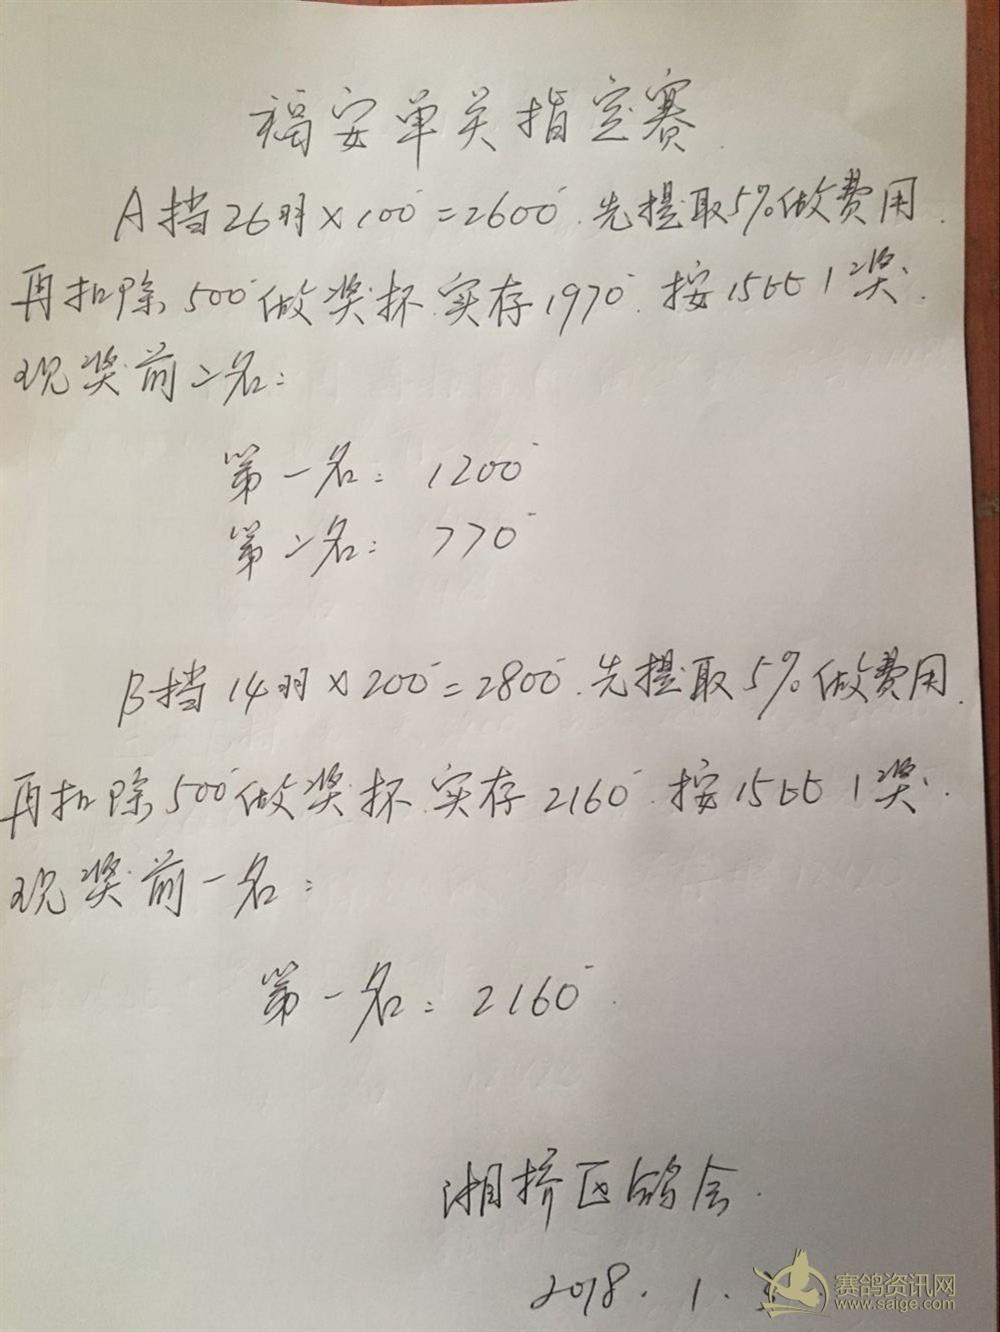 福安单关指定赛.
A挡26羽×100=2600.先提取5%做费用.
再扣除500做奖杯.实存1970.按15661奖.
现奖前二名:
第一名:1200
第二名:770
B挡14羽×200=2800.先提取5%做费用.
再扣除500做奖杯.实存2160.按15661奖.
现奖前一名:
第一名:2160.
湘桥区鸽会.
2018.1.
赛鸽资讯网
www.saige.com